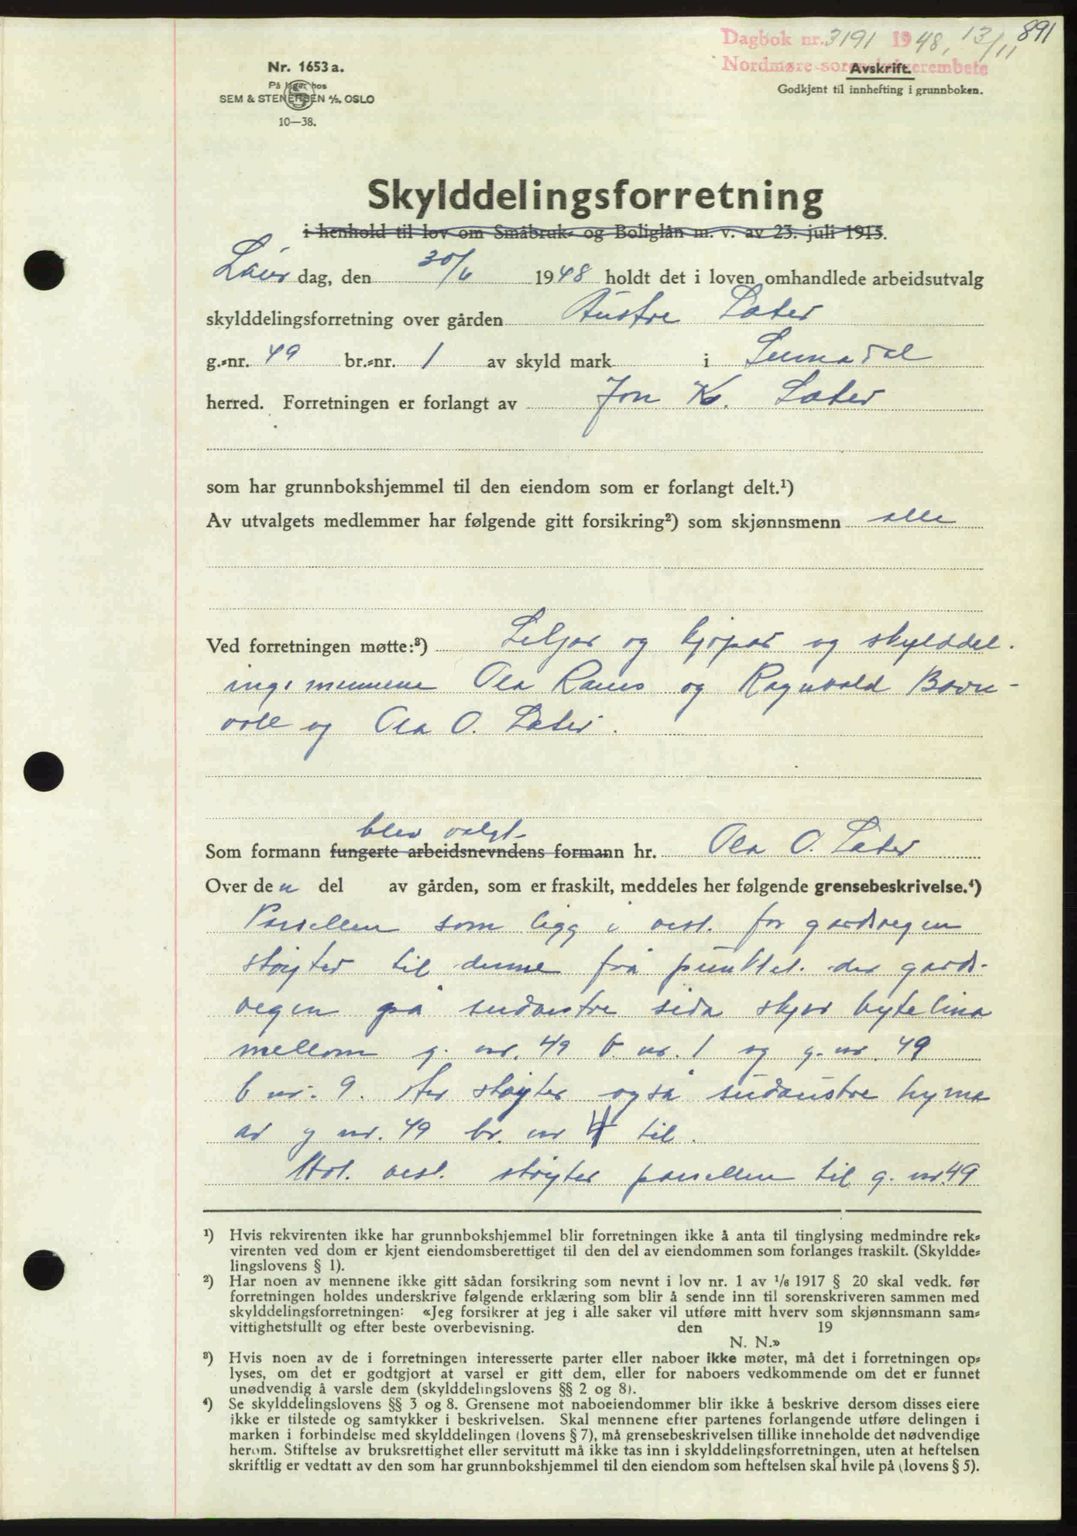 891
Dagbok nr. 3191 1948, 13/11
Nordmøre sorenskriverembete
Nr. 1653 a.
Avskrift.
På lager hos
SEM & STENERSEN A/S, OSLO
Godkjent til innhefting i grunnboken.
10—38.
Skylddelingsforretning
i henhold til lov om Småbruk- og Boliglån m. v. av 23. juli 1915.
Laur dag, den 30/6 1948 holdt det i loven omhandlede arbeidsutvalg
skylddelingsforretning over gården Austre Sæter
g.-nr. 49 br.-nr. 1 av skyld mark i Surnadal
herred. Forretningen er forlangt av Jon K. Sæter
som har grunnbokshjemmel til den eiendom som er forlangt delt.¹)
Av utvalgets medlemmer har følgende gitt forsikring²) som skjønnsmenn alle
Ved forretningen møtte:³) Seljar og kjøpar og skylddel.
ingsmennene Ola Ranes og Ragnvald Bævr-
voll og Ola O. Sæter.
blev valgt
Som formann fungerte arbeidsnevndens formann hr. Ola O. Sæter
Over den del av gården, som er fraskilt, meddeles her følgende grensebeskrivelse.⁴)
Parsellen som ligg i vest for gardsvegen
støyter til denne frå punktet der gards-
vegen på sudaustre sida skjer bytelina
mellom g. nr. 49 b nr. 1 og g. nr. 49
b nr. 9. Her støyter også sudaustre hyrna
av g nr. 49 br. nr 4 til.
Mot vest støyter parsellen til g. nr. 49
¹) Hvis rekvirenten ikke har grunnbokshjemmel blir forretningen ikke å anta til tinglysing medmindre rek-
virenten ved dom er kjent eiendomsberettiget til den del av eiendommen som forlanges fraskilt. (Skyldde-
lingslovens § 1).
²) Har noen av mennene ikke gitt sådan forsikring som nevnt i lov nr. 1 av 1/6 1917 § 20 skal vedk. før
forretningen holdes underskrive følgende erklæring som blir å sende inn til sorenskriveren sammen med
skylddelingsforretningen: «Jeg forsikrer at jeg i alle saker vil utføre mitt hverv som skjønnsmann sam-
vittighetsfullt og efter beste overbevisning. den 19
N. N.»
³) Hvis noen av de i forretningen interesserte parter eller naboer ikke møter, må det i forretningen op-
lyses, om det er godtgjort at varsel er gitt dem, eller for naboers vedkommende om det er funnet
unødvendig å varsle dem (skylddelingslovens §§ 2 og 8).
⁴) Se skylddelingslovens §§ 3 og 8. Grensene mot naboeiendommer blir ikke å beskrive dersom disses eiere
ikke er tilstede og samtykker i beskrivelsen. Skal mennene efter partenes forlangende utføre delingen i
marken i forbindelse med skylddelingen (lovens § 7), må grensebeskrivelsen tillike inneholde det nødvendige
herom. Stiftelse av bruksrettighet eller servitutt må ikke tas inn i skylddelingsforretningen, uten at heftelsen
skriftlig er vedtatt av den som har grunnbokshjemmel til den eiendom som heftelsen skal hvile på (lovens § 5).